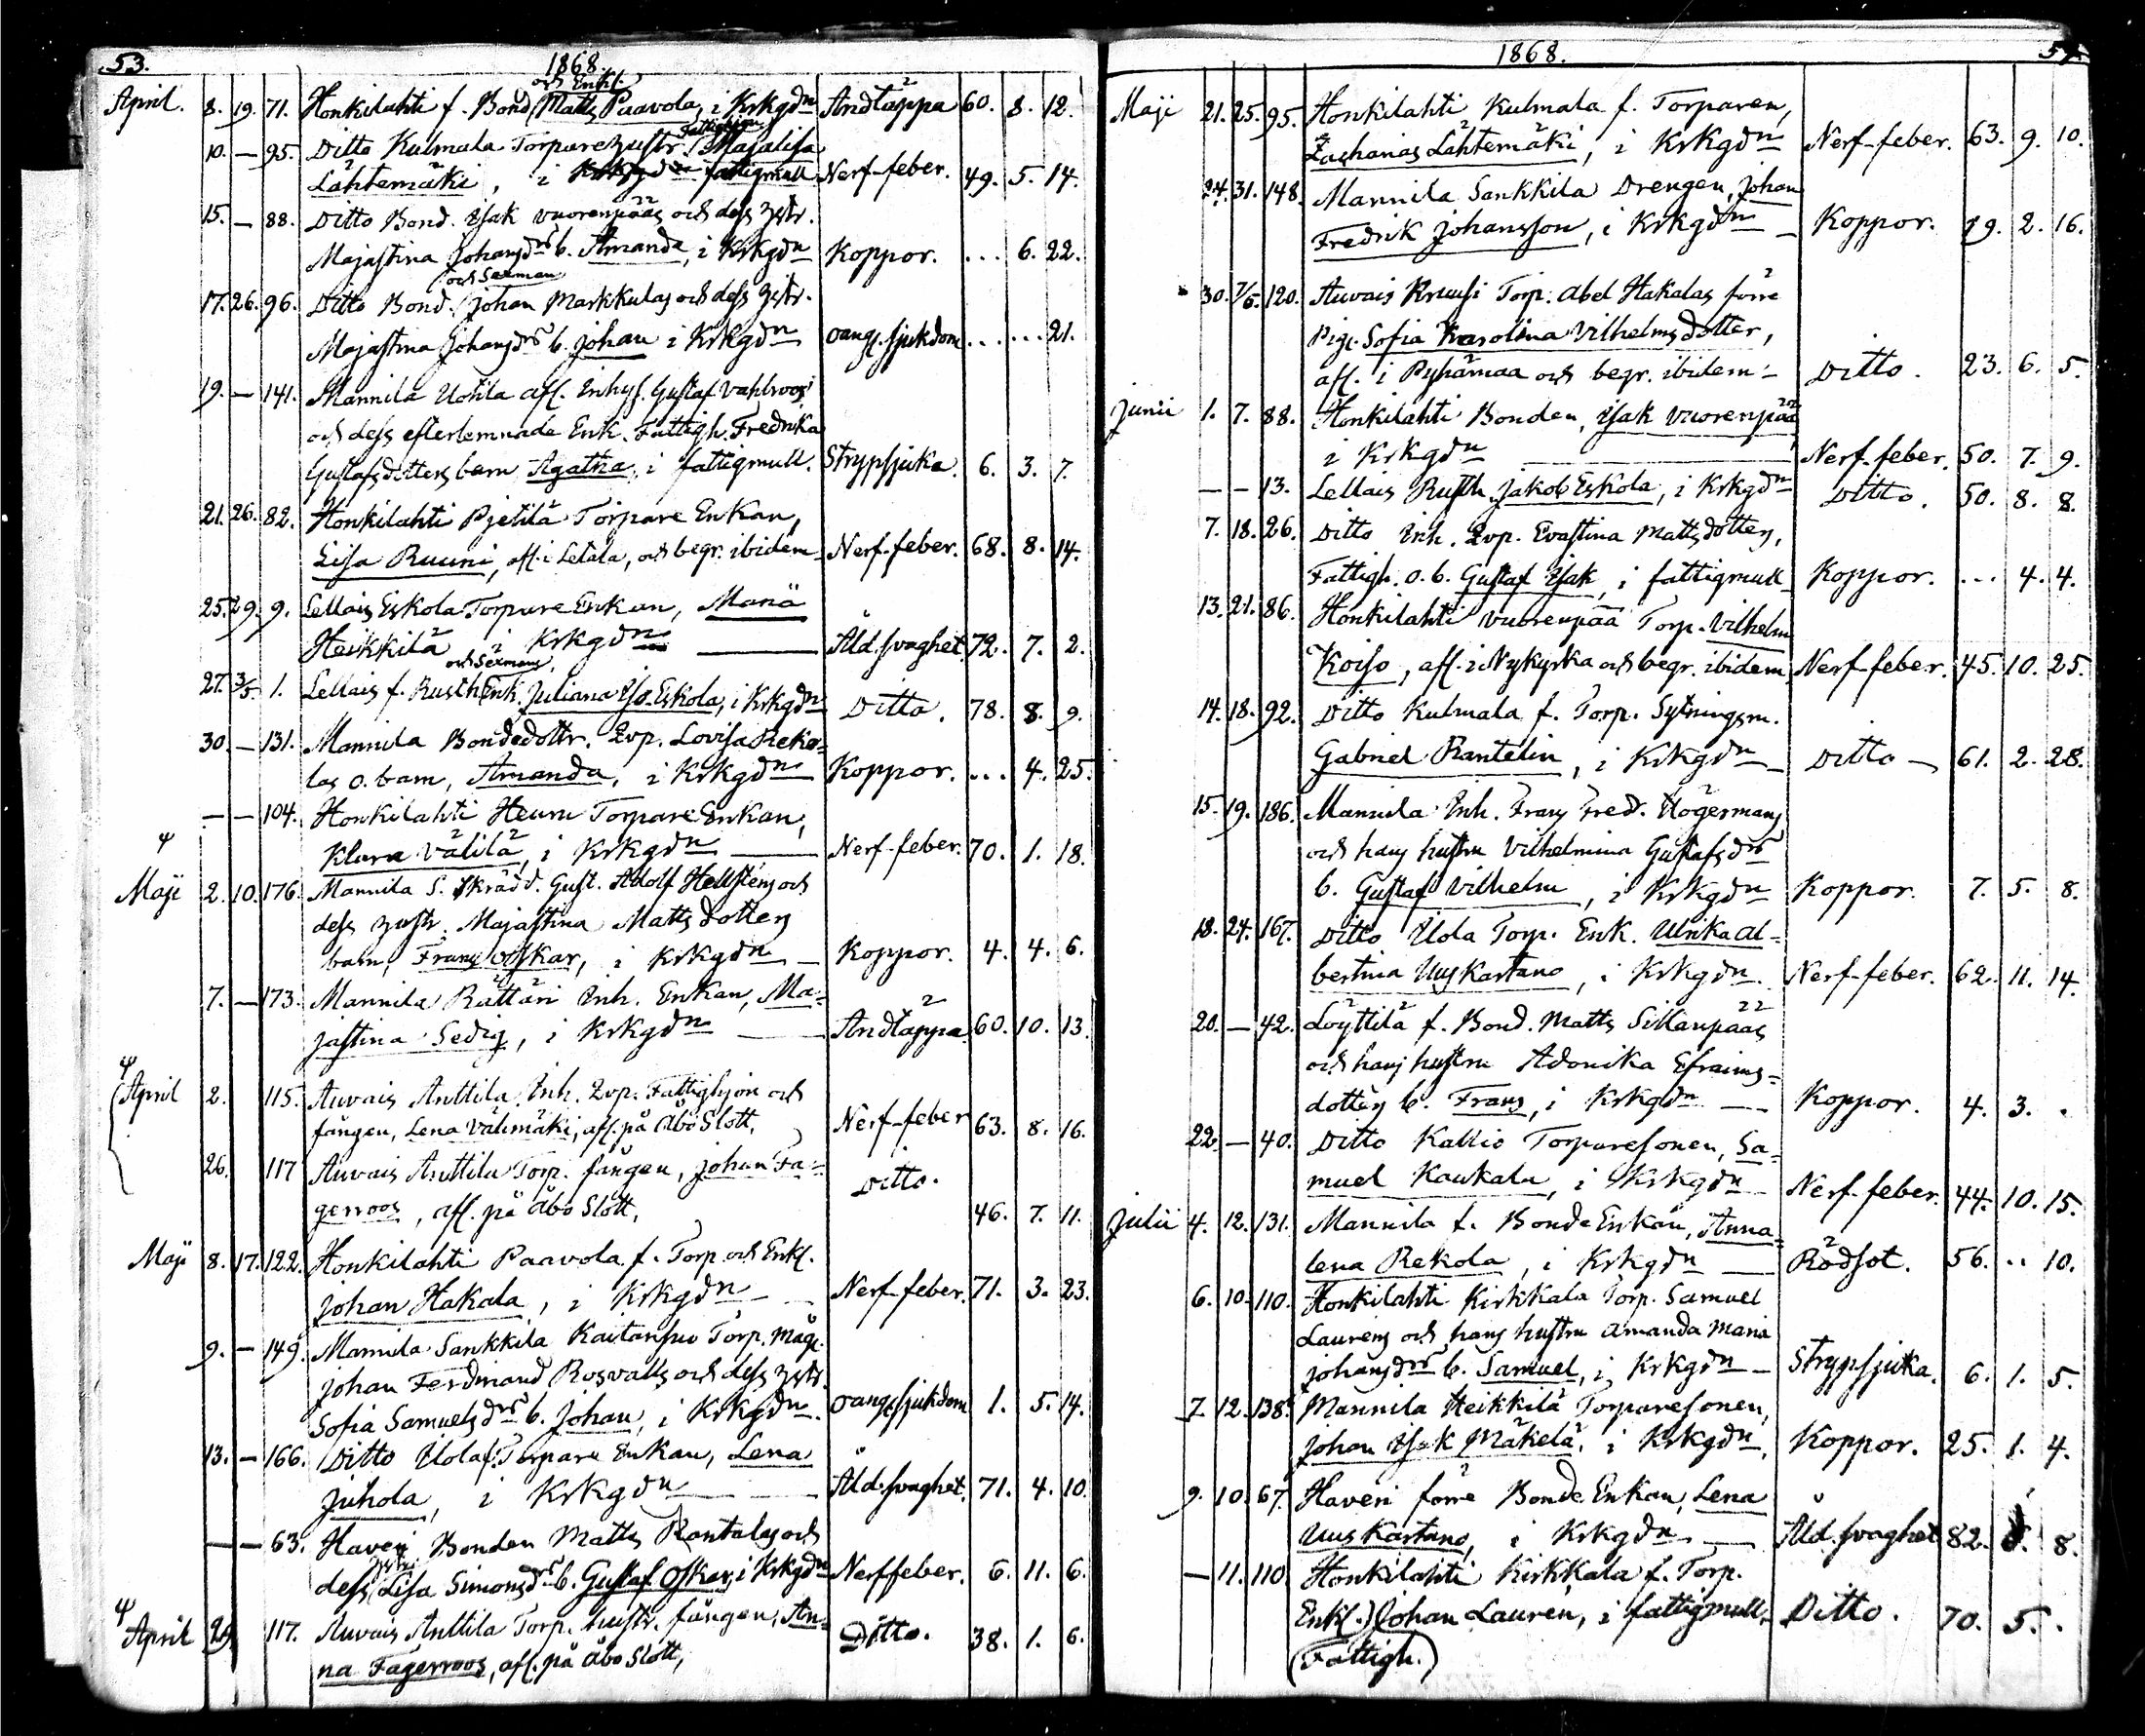 53.
1868.
och Enkl.
April. 8. 19. 71. Honkilahti f. Bond. Matts Paavola, i Krkgdn Andtäppa 60. 8. 12.
Fattighjon
10. — 95. Ditto Kulmala Torpare hustr. Majalisa
Lähtemäki, i fattigmull Nerf-feber. 49. 5. 14.
15. — 88. Ditto Bond. Isak Vuorenpääs och dess hstr.
Majastina Johansdrs b. Amanda, i Krkgdn Koppor. ... 6. 22.
och Sexman
17. 26. 96. Ditto Bond. Johan Markkulas och dess hstr.
Majastina Johansdrs b. Johan i Krkgdn oang. sjukdom ... ... 21.
19. — 141. Mannila Uotila afl. Inhys. Gustaf Vahlroos
och dess efterlemnade Enk. Fattigh. Fredrika
Gustafsdotters barn Agatha, i fattigmull. Strypsjuka. 6. 3. 7.
21. 26. 82. Honkilahti Pjetilä Torpare Enkan,
Lisa Ruuni, afl. i Letala, och begr. ibidem Nerf-feber. 68. 8. 14.
25. 29. 9. Lellais Eskola Torpare Enkan, Maria
Heikkilä i Krkgdn Åld. svaghet. 72. 7. 2.
och Sexmans
27. 3/5. 1. Lellais f. Rusth. Enk. Juliana Eskola, i Krkgdn Ditto. 78. 8. 9.
30. — 131. Mannila Bondedottr. Qvp. Lovisa Reko-
las o. barn, Amanda, i Krkgdn Koppor. ... 4. 25.
— — 104. Honkilahti Heuru Torpare Enkan,
Klara Välilä, i Krkgdn Nerf-feber. 70. 1. 18.
Maji 2. 10. 176. Mannila S. Skrädd. Gust. Adolf Hellstens och
dess hustr. Majastina Mattsdotters
barn, Frans Oskar, i Krkgdn Koppor. 4. 4. 6.
7. — 173. Mannila Rättäri Inh. Enkan, Ma-
jastina Sedig, i Krkgdn Andtäppa 60. 10. 13.
April 2. 115. Auvais Anttila Inh. Qvp. Fattighjon och
fången, Lena Välimäki, afl. på Åbo Slott, Nerf-feber 63. 8. 16.
26. 117 Auvais Anttila Torp. fången, Johan Fa-
gerroos, afl. på Åbo Slott, Ditto. 46. 7. 11.
Maji 8. 17. 122. Honkilahti Paavola f. Torp. och Enkl.
Johan Hakala, i Krkgdn Nerf-feber. 71. 3. 23.
9. — 149. Mannila Sankkila Kaitarisuo Torp. Måg.
Johan Ferdinand Rosvalls och dess hstr.
Sofia Samuelsdrs b. Johan, i Krkgdn. oang. sjukdom 1. 5. 14.
13. — 166. Ditto Uola f. Torpare Enkan, Lena
Juhola, i Krkgdn Åld. svaghet. 71. 4. 10.
— — 63. Haveri Bonden Matts Rantalas och
hstr.
dess Lisa Simonsdrs b. Gustaf Oskar, i Krkgdn Nerffeber. 6. 11. 6.
April 29 117. Auvais Anttila Torp. hustr. fången, An-
na Fagerroos, afl. på Åbo Slott, Ditto. 38. 1. 6.
1868.
54.
Maji 21. 25. 95. Honkilahti Kulmala f. Torparen,
Zacharias Lähtemäki, i Krkgdn Nerf-feber. 63. 9. 10.
24. 31. 148. Mannila Sankkila Drengen, Johan
Fredrik Johansson, i Krkgdn Koppor. 19. 2. 16.
30. 7/6. 120. Auvais Kruusi Torp. Abel Hakalas förre
Pig. Sofia Karolina Vilhelmsdotter,
afl. i Pyhämaa och begr. ibidem Ditto. 23. 6. 5.
Junii 1. 7. 88. Honkilahti Bonden, Isak Vuorenpää
i Krkgdn Nerf-feber. 50. 7. 9.
— — 13. Lellais Rusth. Jakob Eskola, i Krkgdn Ditto. 50. 8. 8.
7. 18. 26. Ditto Inh. Qvp. Evastina Mattsdotters,
Fattigh. o. b. Gustaf Isak, i fattigmull Koppor. ... 4. 4.
13. 21. 86. Honkilahti Vuorenpää Torp. Vilhelm
Koiso, afl. i Nykyrka och begr. ibidem Nerf-feber. 45. 10. 25.
14. 18. 92. Ditto Kulmala f. Torp. Sytningsm.
Gabriel Rantelin, i Krkgdn Ditto 61. 2. 28.
15. 19. 186. Mannila Inh. Frans Fred. Högermans
och hans hustru Vilhelmina Gustafsdrs
b. Gustaf Vilhelm, i Krkgdn Koppor. 7. 5. 8.
18. 24. 167. Ditto Uola Torp. Enk. Ulrika Al-
bertina Uuskartano, i Krkgdn. Nerf-feber. 62. 11. 14.
20. — 42. Löyttilä f. Bond. Matts Sillanpääs
och hans hustru Adonika Efraims-
dotters b. Frans, i Krkgdn Koppor. 4. 3. .
22. — 40. Ditto Kallio Torparesonen, Sa-
muel Kaukala, i Krkgdn Nerf-feber. 44. 10. 15.
Julii 4. 12. 131. Mannila f. Bonde Enkan, Anna-
lena Rekola, i Krkgdn Rödsot. 56. .. 10.
6. 10. 110. Honkilahti Kirkkala Torp. Samuel
Laurens och hans hustru Amanda Maria
Johansdrs b. Samuel, i Krkgdn Strypsjuka. 6. 1. 5.
7. 12. 138. Mannila Heikkilä Torparesonen,
Johan Isak Mäkelä, i Krkgdn, Koppor. 25. 1. 4.
9. 10. 67. Haveri förre Bonde Enkan, Lena
Uuskartano, i Krkgdn Åld. svaghet 82. 8.
— 11. 110 Honkilahti Kirkkala f. Torp.
Enkl.) Johan Lauren, i fattigmull, Ditto. 70. 5. .
(Fattigh.)